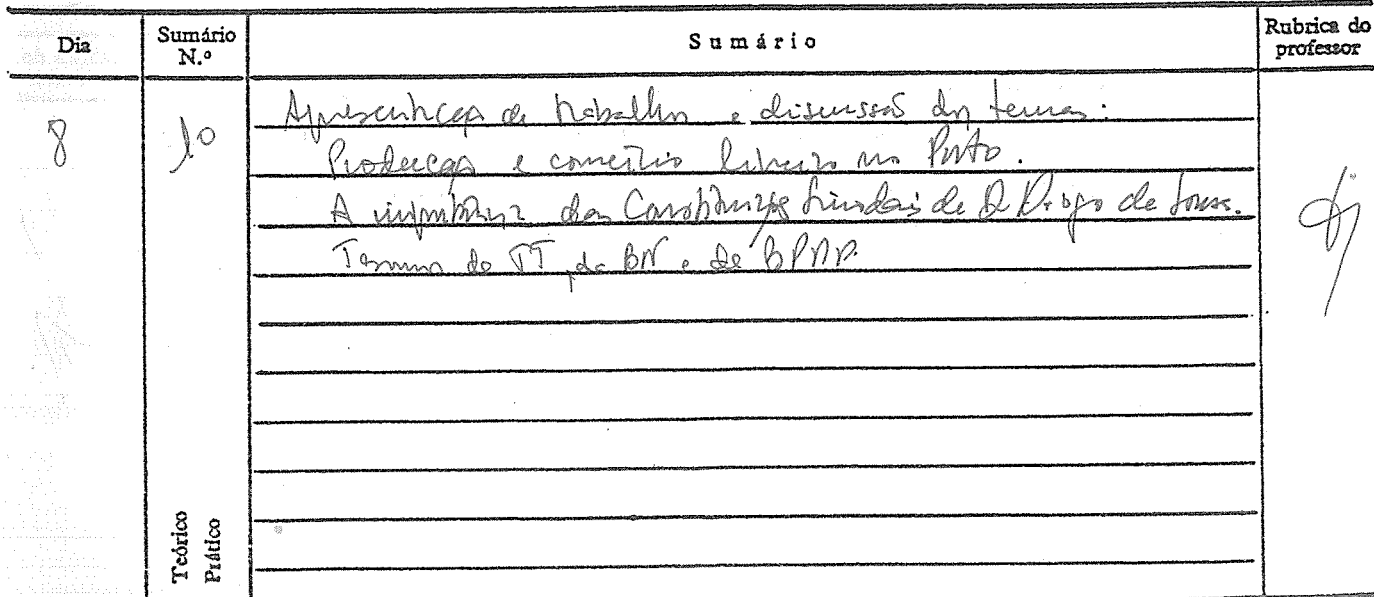 Dia
Sumário N.º
Sumário
Rubrica do professor
8
10
Apresentação de trabalhos e discussão dos temas:
Producção e comércio livreiro no Porto.
A importância das Constituições Sinodais de D. Diogo de Sousa.
do TT, da BN e da BPMP.
Teórico
Prático